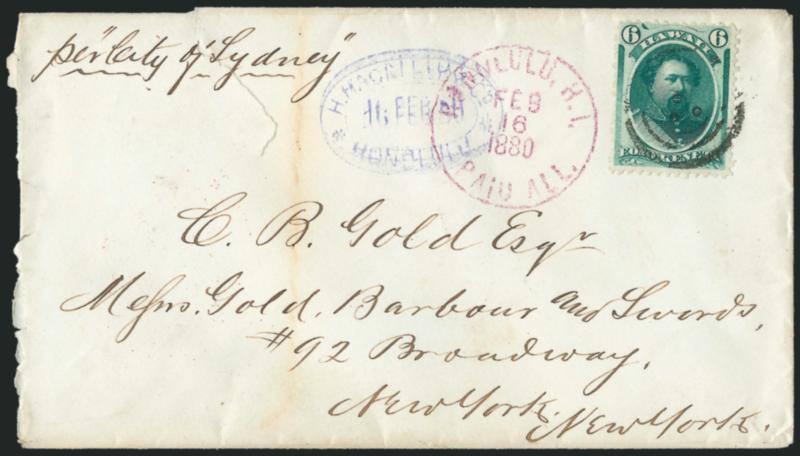 per "City of Sydney"
H. HACKFELD & CO
16 FEB 80
HONOLULU
HONOLULU, H.I.
FEB
16
1880
PAID ALL.
6 HAWAII 6
C. B. Gold Esqr
Messrs. Gold, Barbour and Swords,
#92 Broadway,
New York.
New York.